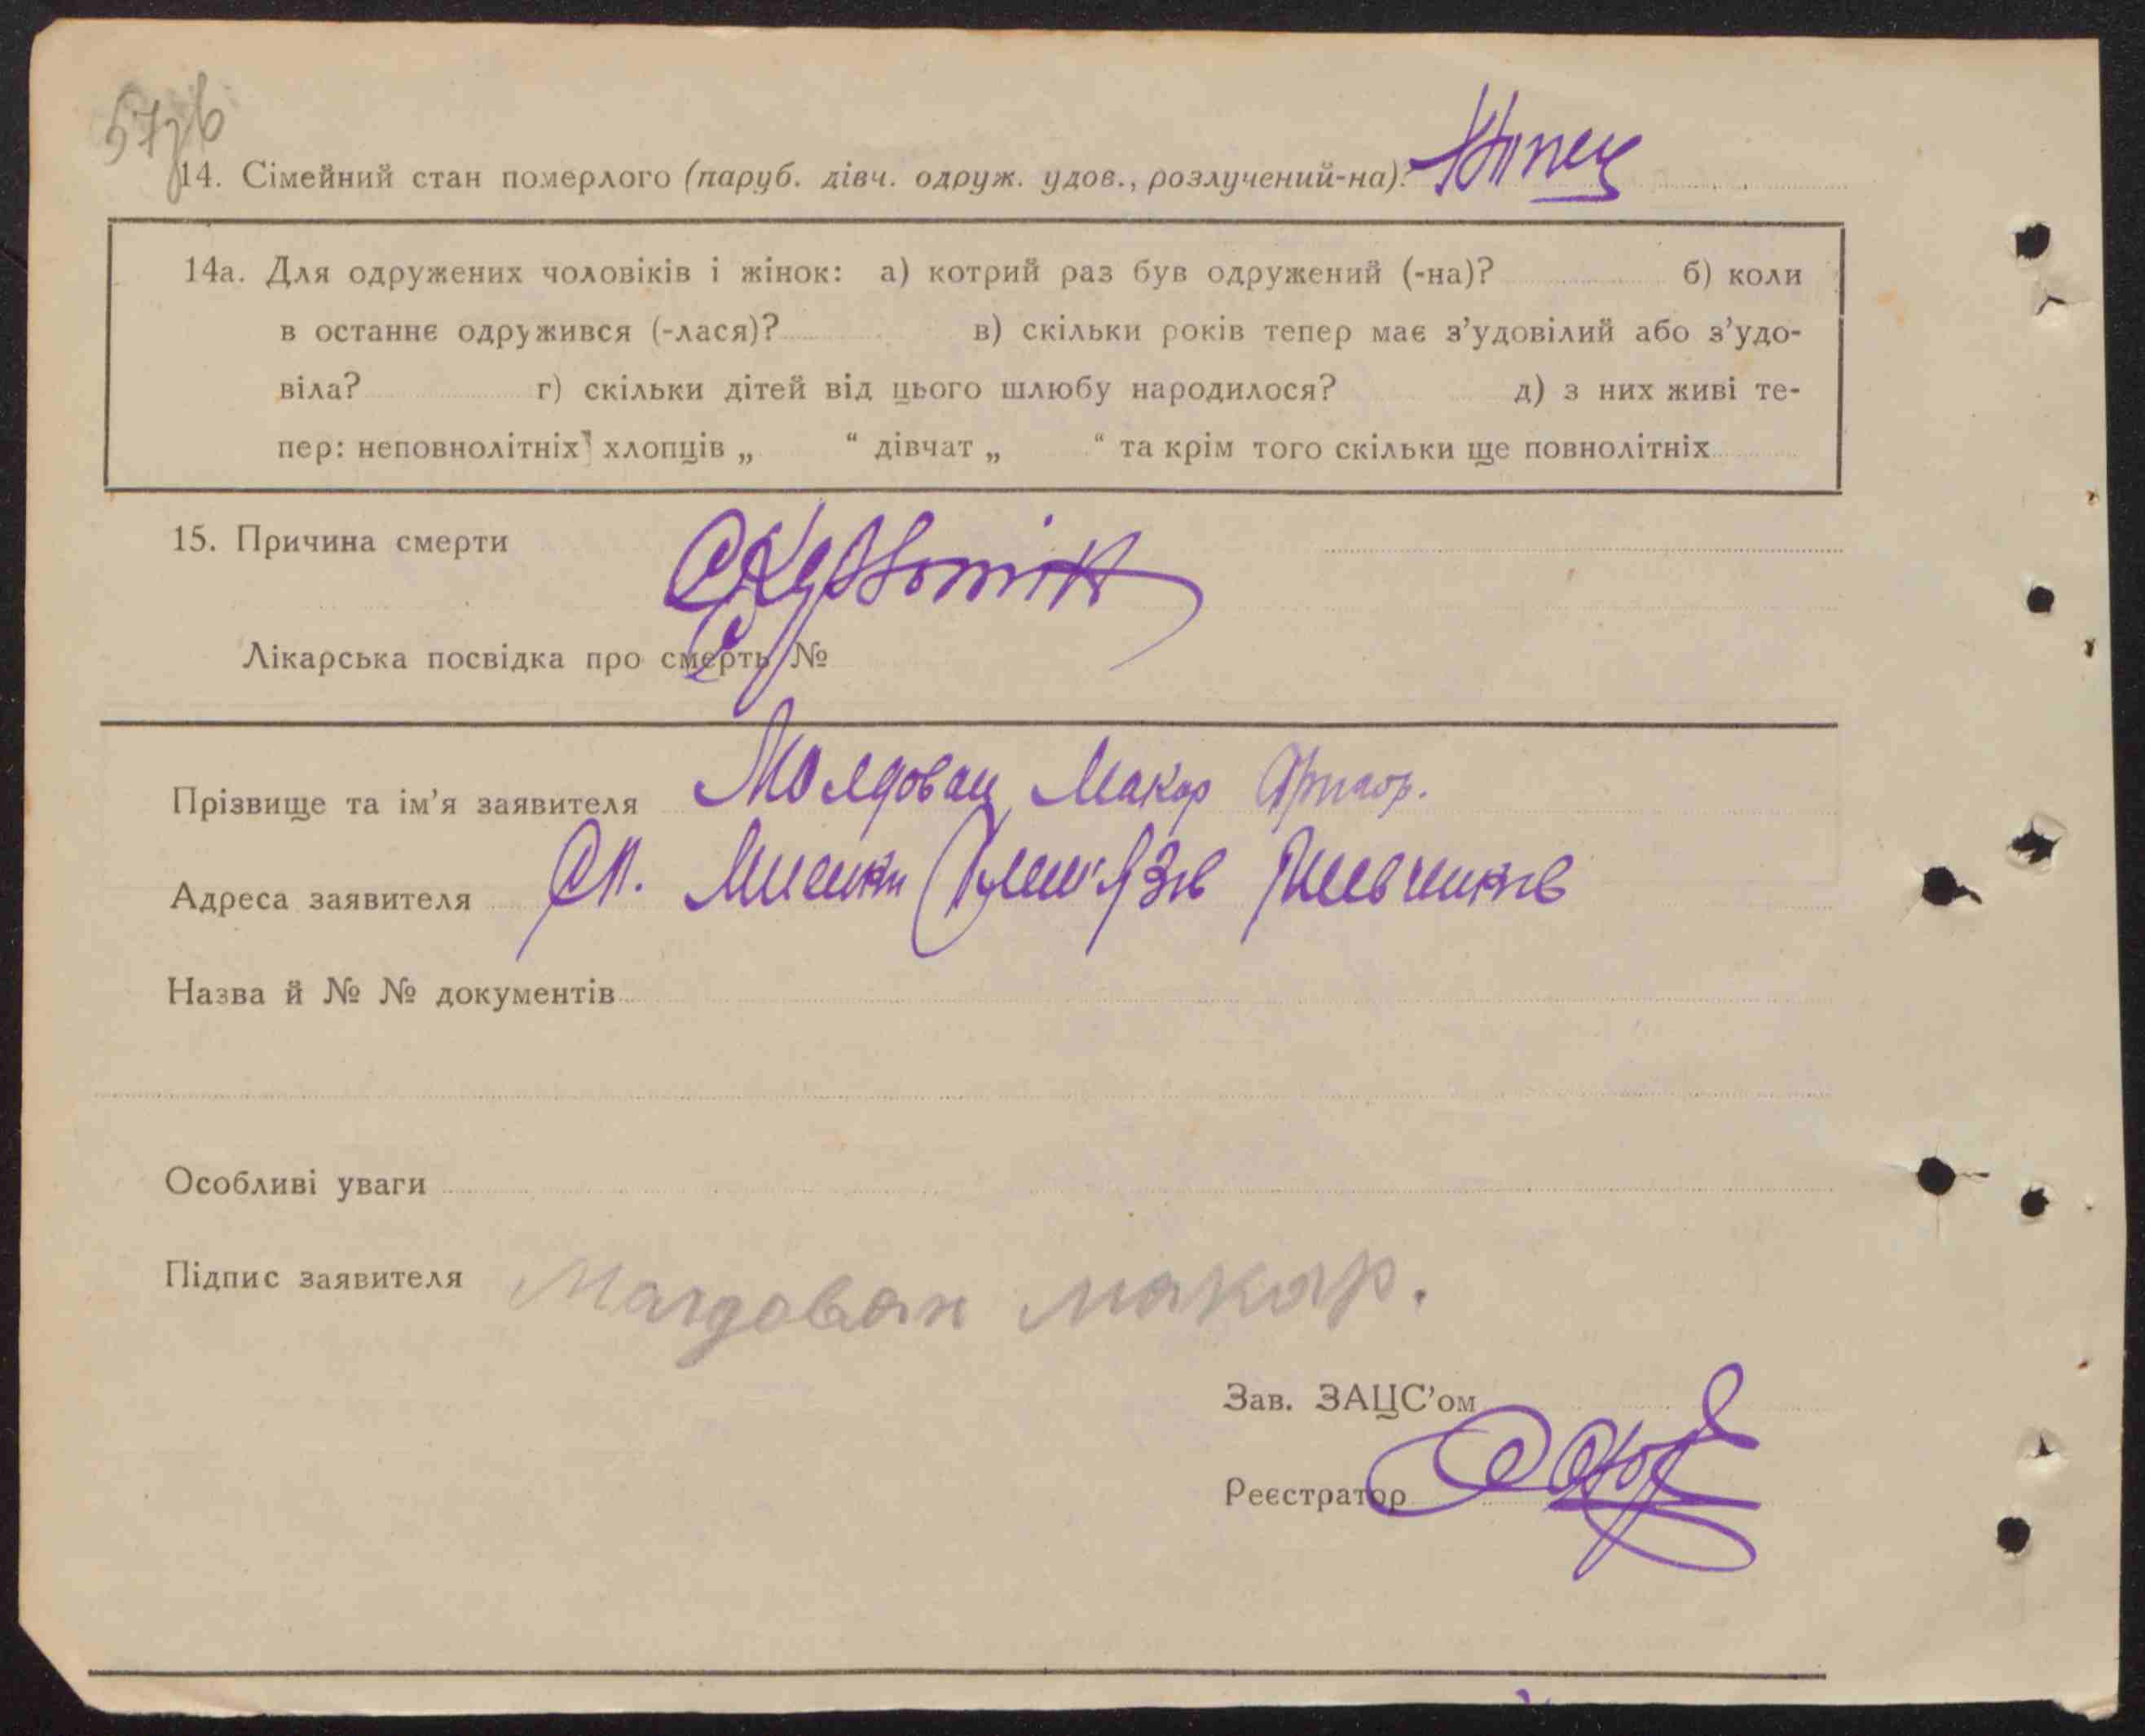 57зв
14. Сімейний стан померлого (паруб. дівч. одруж. удов., розлучений-на)? Хлпец
14а. Для одружених чоловіків і жінок: а) котрий раз був одружений (-на)? б) коли
в останнє одружився (-лася)? в) скільки років тепер має з’удовілий або з’удо-
віла? г) скільки дітей від цього шлюбу народилося? д) з них живі те-
пер: неповнолітніх хлопців „ “ дівчат „ “ та крім того скільки ще повнолітніх
15. Причина смерти
Лікарська посвідка про смерть №
Прізвище та ім’я заявителя Молдован Макар
Адреса заявителя Сл.
Назва й № № документів
Особливі уваги
Підпис заявителя Молдован Макар.
Зав. ЗАЦС’ом
Реєстратор